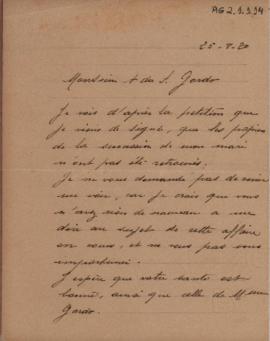 AG2.1.1.14
25-9-20
Monsieur A. dos S. Jardo
Je vois d'après la petition que
je viens de signé, que les papiers
de la succession de mon mari
n'ont pas été retrouvés.
Je ne vous demande pas de venir
me voir, car je crois que vous
n'avez rien de nouveau a me
dire au sujet de cette affaire
en cours, et ne veus pas vous
importuner.
J'espère que votre santé est
bonne, ainsi que celle de Mme
Jardo.